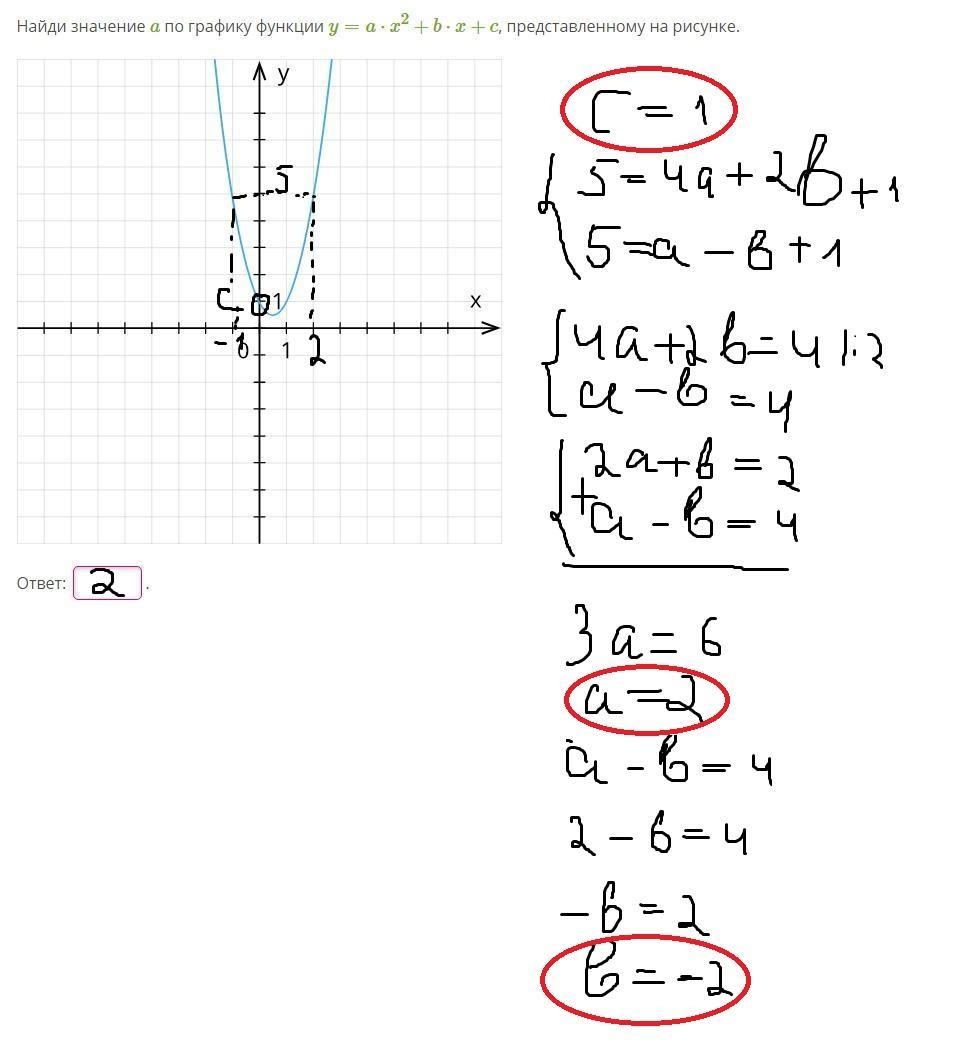 Найди значение a по графику функции y = a · x² + b · x + c, представленному на рисунке.
y
5
c
1
x
-1
0
1
2
Ответ: 2 .
c = 1
5 = 4a + 2b + 1
5 = a - b + 1
4a + 2b = 4 |:2
a - b = 4
2a + b = 2
+
a - b = 4
3a = 6
a = 2
a - b = 4
2 - b = 4
-b = 2
b = -2